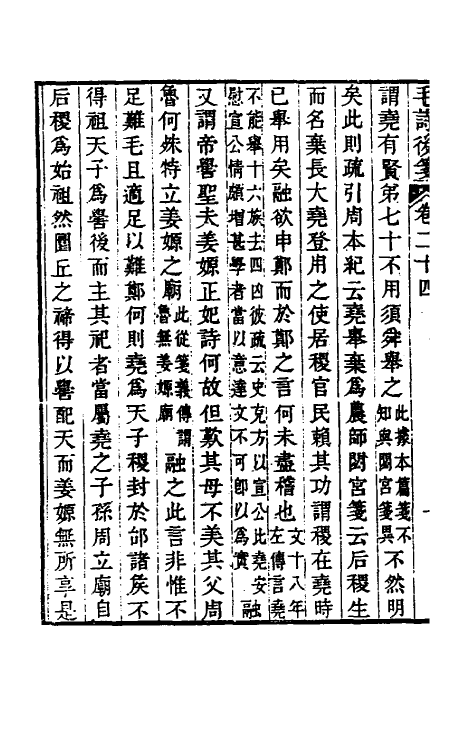 毛詩後箋 卷二十四 一
謂堯有賢弟七十不用須舜舉之此據本篇箋不知與閟宮箋異不然明
矣此則疏引周本紀云堯舉棄爲農師閟宮箋云后稷生
而名棄長大堯登用之使居稷官民賴其功謂稷在堯時
已舉用矣融欲申鄭而於鄭之言何未盡稽也文十八年左傳言堯
不能舉十六族去四凶彼疏云史克方以宣公比堯安慰宣公情頗增甚學者當以意達文不可卽以爲實融
又謂帝嚳聖夫姜嫄正妃詩何故但歎其母不美其父周
魯何殊特立姜嫄之廟此從箋義傳謂魯無姜嫄廟融之此言非惟不
足難毛且適足以難鄭何則堯爲天子稷封於邰諸矦不
得祖天子爲嚳後而主其祀者當屬堯之子孫周立廟自
后稷爲始祖然圜丘之禘得以嚳配天而姜嫄無所享是